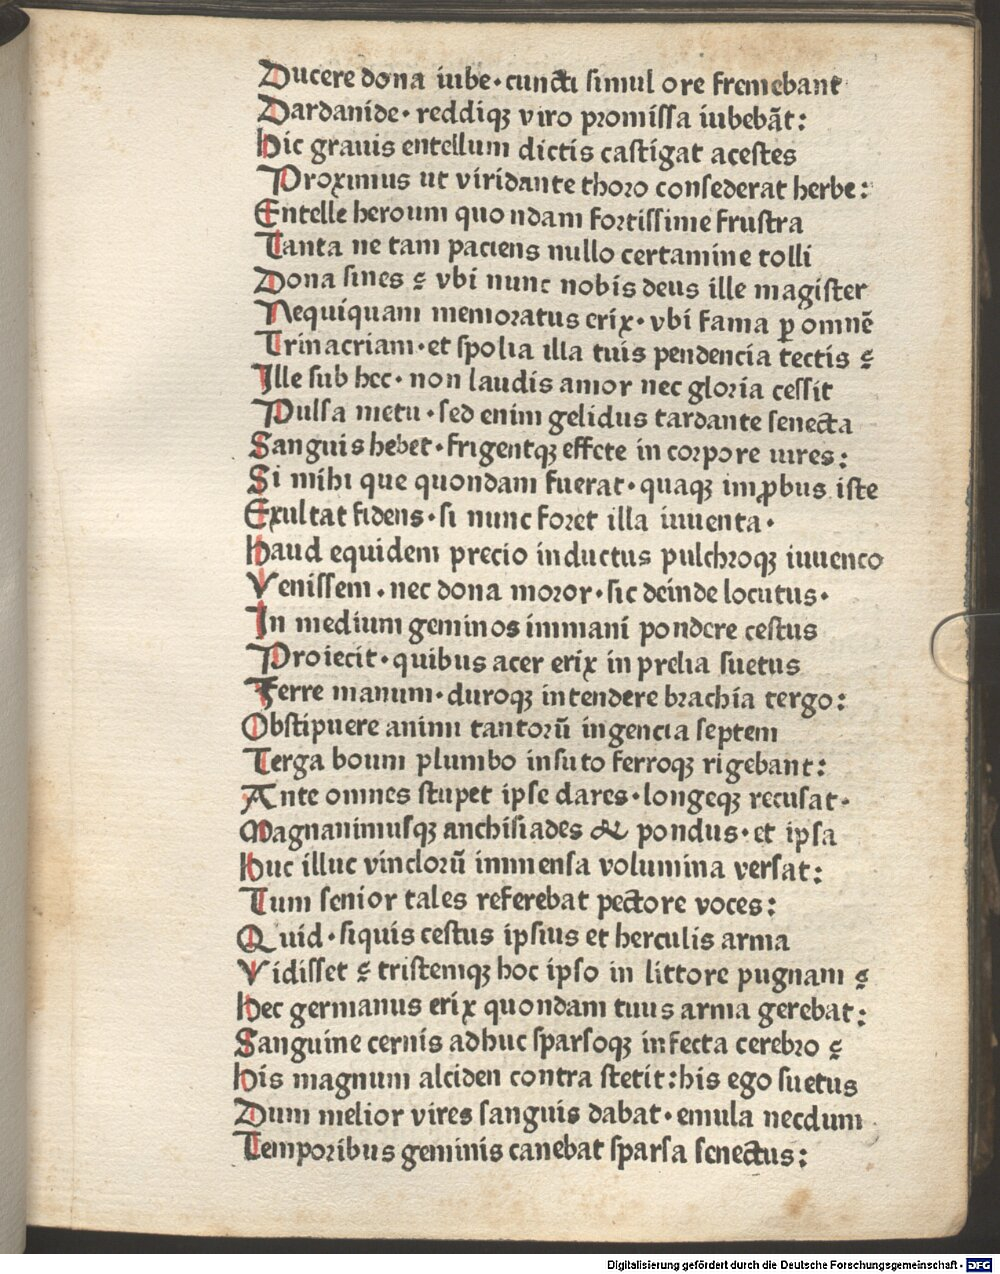 Ducere dona iube · cuncti simul ore fremebant
Dardanide · reddiqꝫ viro promissa iubebãt:
Hic grauis entellum dictis castigat acestes
Proximus ut viridante thoro consederat herbe:
Entelle heroum quo ndam fortissime frustra
Tanta ne tam paciens nullo certamine tolli
Dona sines ? vbi nunc nobis deus ille magister
Nequiquam memoratus erix · vbi fama ꝑ omnẽ
Trinacriam · et spolia illa tuis pendencia tectis ?
Ille sub hec · non laudis amor nec gloria cessit
Pulsa metu · sed enim gelidus tardante senecta
Sanguis hebet · frigentqꝫ effete in corpore uires:
Si mihi que quondam fuerat · quaqꝫ imꝓbus iste
Exultat fidens · si nunc foret illa iuuenta ·
Haud equidem precio inductus pulchroqꝫ iuuenco
Venissem · nec dona moror · sic deinde locutus ·
In medium geminos immani pondere cestus
Proiecit · quibus acer erix in prelia suetus
Ferre manum · duroqꝫ intendere brachia tergo:
Obstipuere animi tantorũ ingencia septem
Terga boum plumbo insuto ferroqꝫ rigebant:
Ante omnes stupet ipse dares · longeqꝫ recusat ·
Magnanimusqꝫ anchisiades & pondus · et ipsa
Huc illuc vinclorũ immensa volumina versat:
Tum senior tales referebat pectore voces:
Quid · siquis cestus ipsius et herculis arma
Vidisset ? tristemqꝫ hoc ipso in littore pugnam ?
Hec germanus erix quondam tuus arma gerebat:
Sanguine cernis adhuc sparsoqꝫ infecta cerebro ?
His magnum alciden contra stetit: his ego suetus
Dum melior vires sanguis dabat · emula necdum
Temporibus geminis canebat sparsa senectus:
Digitalisierung gefördert durch die Deutsche Forschungsgemeinschaft - DFG